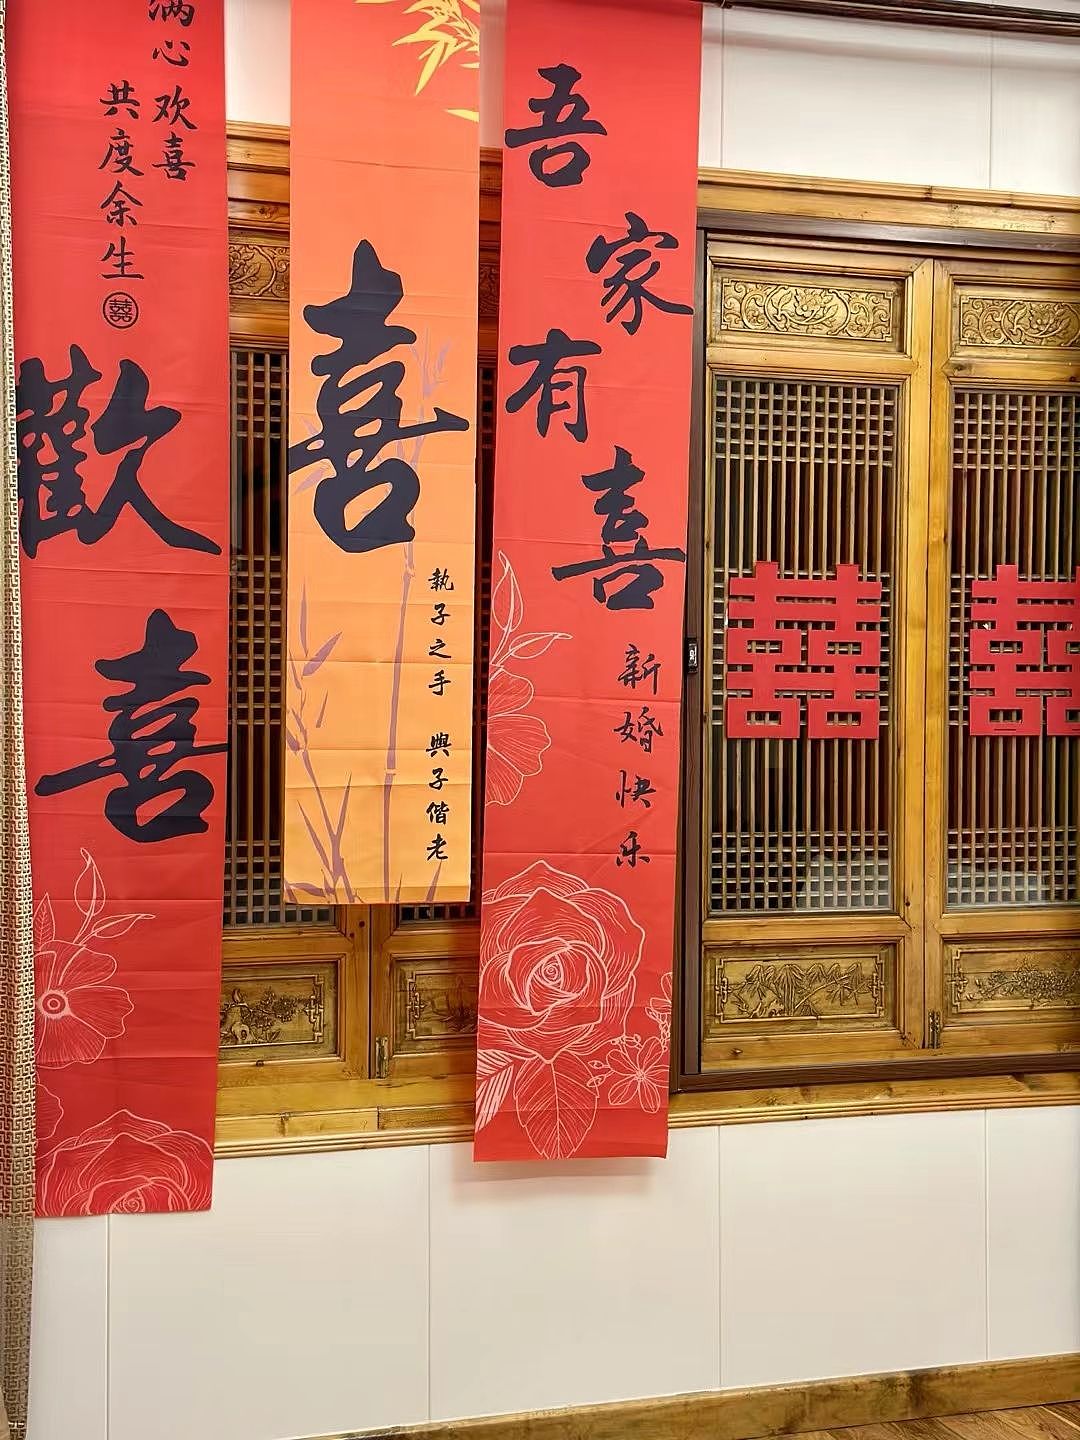 满心欢喜
共度余生
囍
歡喜
喜
執子之手 與子偕老
吾家有喜
新婚快乐
囍
囍